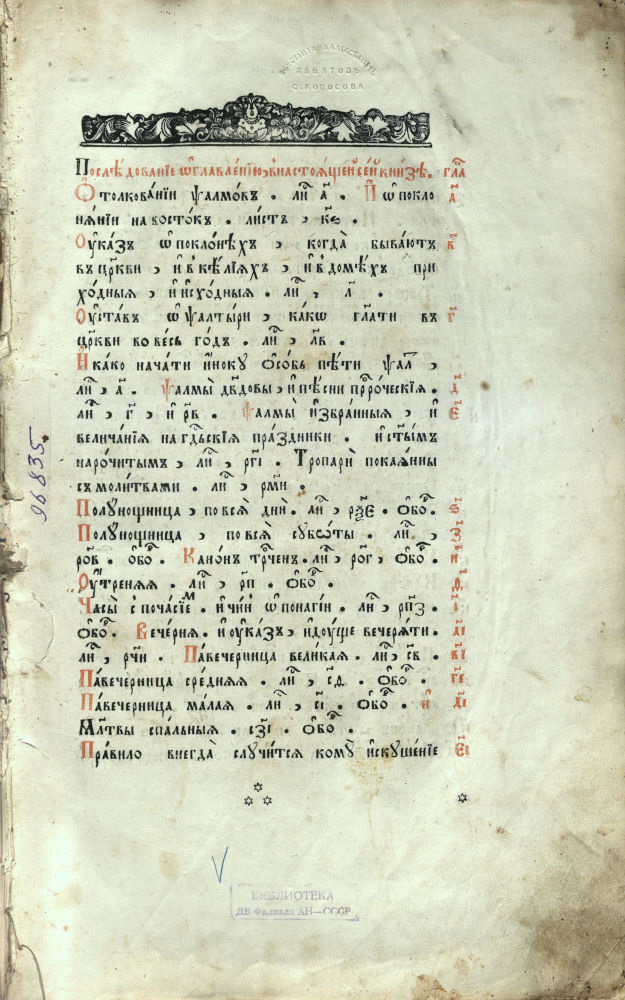 КОНСТАНТИНЪ АЛЕКСѢЕВИЧЪ
ХАНАТОВЪ
С. КОПОСОВА
Послѣ́дованїе ѡ҆главле́нїю, в̾настоѧ́щей се́й кни́зѣ. гл҃а
Ѡ҆ толкова́нїи ѱалмѡ́въ . ли́ , а҃ . И҆ ѡ҆ покло а҃
нѧ́нїи на восто́къ . ли́стъ , к҃ѳ .
Оу҆ка́зъ ѡ҆ покло́нѣхъ , когда̀ быва́ютъ в҃
въ цр҃кви , и҆ в̾ ке́лїѧхъ , и҆ в̾ домѣ́хъ при
хо́дныѧ , и҆ и҆схо́дныѧ . ли́ , л҃ .
Оу҆ста́въ ѡ҆ ѱалты́ри , ка́кѡ гл҃ати въ г҃
цр҃кви во ве́сь го́дъ . ли́ , л҃в .
И҆ ка́ко нача́ти и҆́ноку ѡ҆со́бь пѣ́ти ѱал ,
ли́ , а҃ . Ѱалмы̀ дв҃довы , и҆ пѣ́сни прⷪ҇ро́ческїѧ . д҃
ли́ , г҃ , и҆ р҃в . Ѱалмы̀ и҆збра́нныѧ , и҆ є҃
велича́нїѧ на гдⷭ҇ьскїѧ пра́здники . и҆ ст҃ы́мъ
наро́читымъ , ли́ , рг҃і . Тропарѝ покаѧ́нны
съ моли́твами . ли́ , рм҃и .
Полу́нощница , по всѧ̀ дни̂ . ли́ , рѯ҃є . ѡ҆бо .
Полу́нощница , по всѧ̀ суббѡ́ты . ли́ , з҃
ро҃в . ѡ҆бо . Кано́нъ трⷪ҇чен . ли́ , ро҃г , ѡ҆бо . и҃
Оу҆́тренѧѧ . ли́ , рп҃ . ѡ҆бо . ѳ҃
Часы̀ с̾ почасїем . и҆ чи́н ѡ҆ понагі́и . ли́ , рп҃з . і҃
ѡ҆бо . Вече́рнѧ . и҆ оу҆ка́зъ , и҆доу́ще вечерѧ́ти . а҃і
ли́ , рч҃и . Па́вечерница вели́каѧ . ли́ , с҃в . в҃і
Па́вечерница сре́днѧѧ . ли́ , с҃д . ѡ҆бо . г҃і
Па́вечерница ма́лаѧ . ли́ , с҃і . ѡ҆бо . и҆ д҃і
Мл҃твы спа́льныѧ . сз҃і . ѡ҆бо .
Пра́вило внегда̀ случи́тсѧ кому̀ и҆скуше́нїе є҃і
96835
БИБЛИОТЕКА
ДВ Филиала АН—СССР